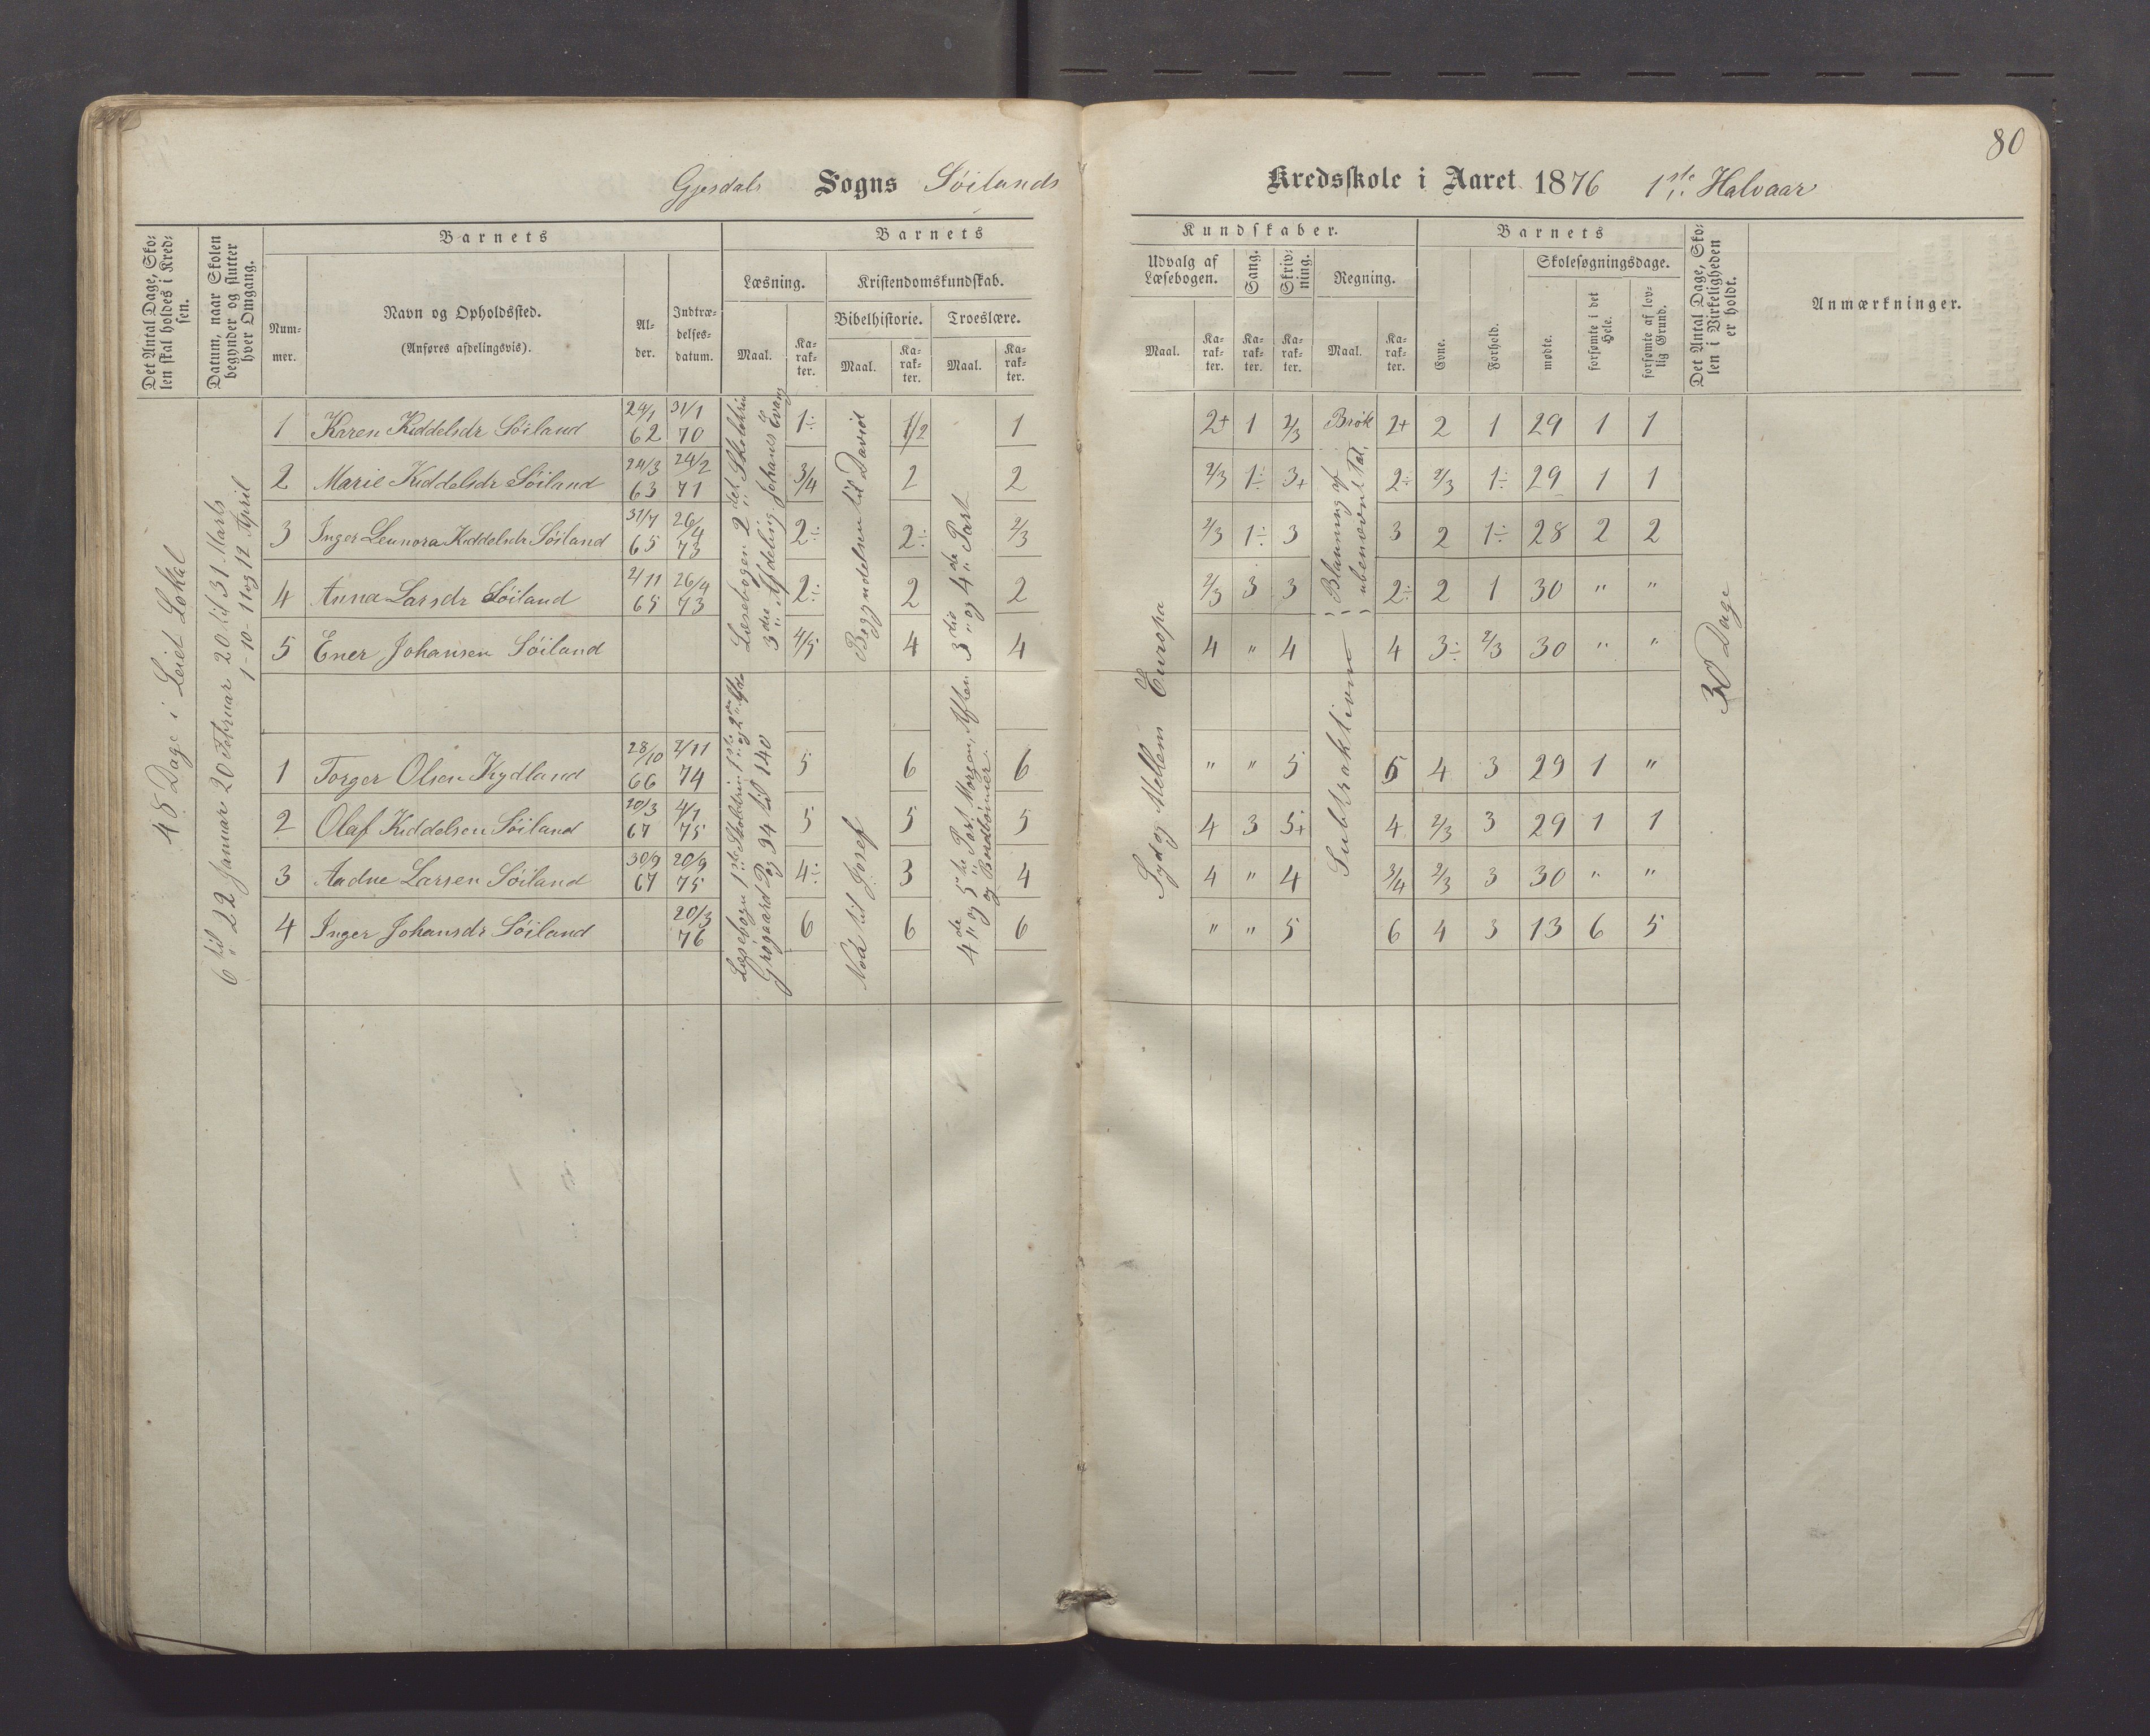 80
Gjesdals Sogns Söilands Kredsskole i Aaret 1876 1ste Halvaar
Det Antal Dage, Skolen skal holdes i Kredsen.
Datum, naar Skolen begynder og slutter hver Omgang.
Barnets
Nummer.
Navn og Opholdssted.
(Anføres afdelingsvis).
Alder.
Indtrædelsesdatum.
Barnets Kundskaber.
Læsning.
Maal.
Karakter.
Kristendomskundskab.
Bibelhistorie.
Maal.
Karakter.
Troeslære.
Maal.
Karakter.
Udvalg af Læsebogen.
Maal.
Karakter.
Sang.
Karakter.
Skrivning.
Karakter.
Regning.
Maal.
Karakter.
Barnets
Evne.
Forhold.
Skolesøgningsdage.
mødte.
forsømte i det Hele.
forsømte af lovlig Grund.
Det Antal Dage, Skolen i Virkeligheden er holdt.
Anmærkninger.
48 Dage i Leiet Lokal
6 til 22 Januar 20 Februar 20 til 31 Marts
1-10-11 og 12 April
Læsebogen 2det Skoletrin
3die Afdeling. Johans Evang
Begyndelsen til David
3die og 4de Part
Syd og Mellem Europa
Brök
Blanning af
ubenævnt Tal.
30 Dage
1 Karen Kiddelsdr Söiland 24/1 62 31/1 70 1÷ 1/2 1 2+ 1 2/3 2+ 2 1 29 1 1
2 Marie Kiddelsdr Söiland 24/3 63 24/2 71 3/4 2 2 2/3 1÷ 3+ 2÷ 2/3 1÷ 29 1 1
3 Inger Leunora Kiddelsdr Söiland 31/7 65 26/4 73 2÷ 2÷ 2/3 2/3 1÷ 3 3 2 1÷ 28 2 2
4 Anna Larsdr Söiland 2/11 65 26/4 73 2÷ 2 2 2/3 3 3 2÷ 2 1 30 " "
5 Ener Johansen Söiland 4/5 4 4 4 " 4 4 3÷ 2/3 30 " "
Læsebogen 1ste Skoletrin 1ste og 2den Afde
Grøgaard Pag 94 til 140
Noa til Josef
4de og 5te Part Morgen, Aften
og Bordbönner
Subtraktionen
1 Torger Olsen Kydland 28/10 66 2/11 74 5 6 6 " " 5 5 4 3 29 1 "
2 Olaf Kiddelsen Söiland 20/3 67 4/7 75 5 5 5 4 3 5+ 4 2/3 3 29 1 1
3 Aadne Larsen Söiland 30/9 67 20/9 75 4÷ 3 4 4 " 4 3/4 2/3 3 30 " "
4 Inger Johansdr Söiland 20/3 76 6 6 6 " " 5 6 4 3 13 6 5